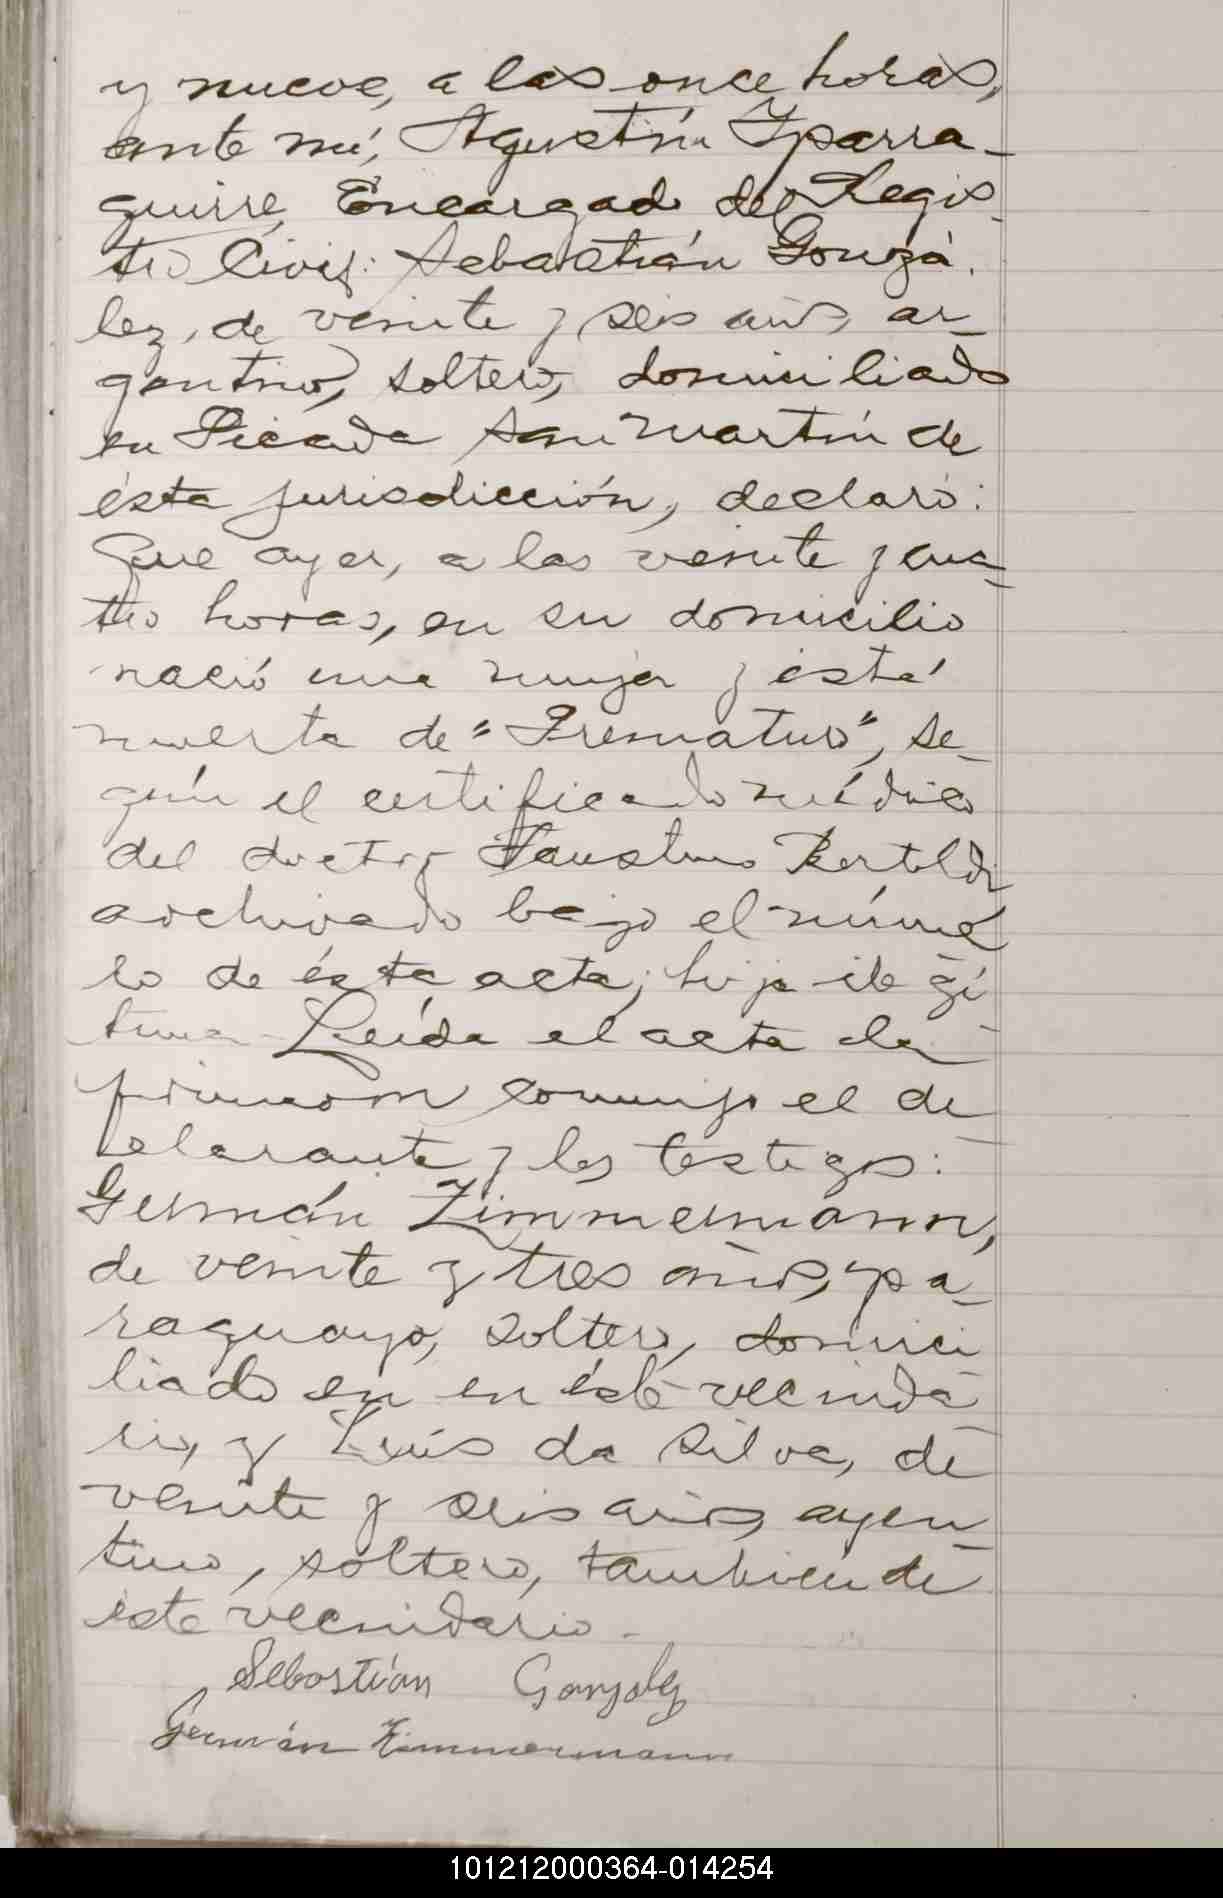 y nueve, a las once horas,
ante mí, Agustín Yparra-
guirre, Encargado del Regis-
tro Civil: Sebastián Gonzá-
lez, de veinte y seis años, ar-
gentino, soltero, domiciliado
en Picada San Martín de
ésta jurisdicción, declaró:
Que ayer, a las veinte y cua-
tro horas, en su domicilio
nació una mujer y está
muerta de "Prematuro", se-
gún el certificado médico
del doctor Faustino Bertoldi
archivado bajo el núme-
ro de ésta acta; hija ilegí-
tima. Leída el acta la
firmaron conmigo el de-
clarante y los testigos:
Germán Zimmermann,
de veinte y tres años, pa-
raguayo, soltero, domici
liado en en éste vecinda-
rio, y Luís da Silva, de
veinte y seis años, argen-
tino, soltero, también de
éste vecindario.-
Sebastián Gonzalez
Germán Zimmermann
101212000364-014254